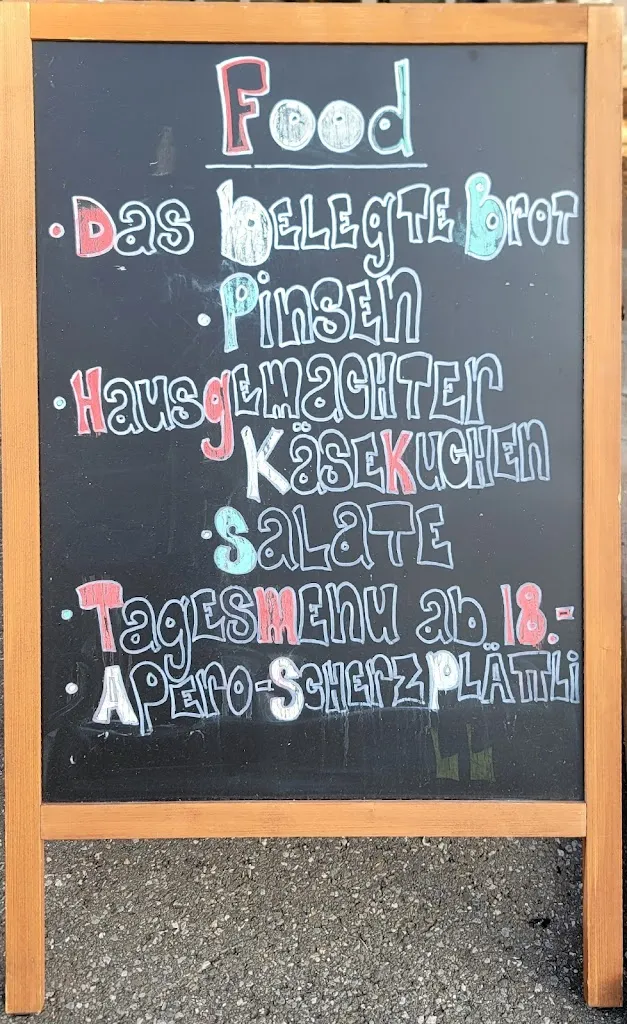 Food
• Das belegte Brot
• Pinsen
• Hausgemachter
Käsekuchen
• Salate
• Tagesmenu ab 18.-
• Apero-Scherzplättli